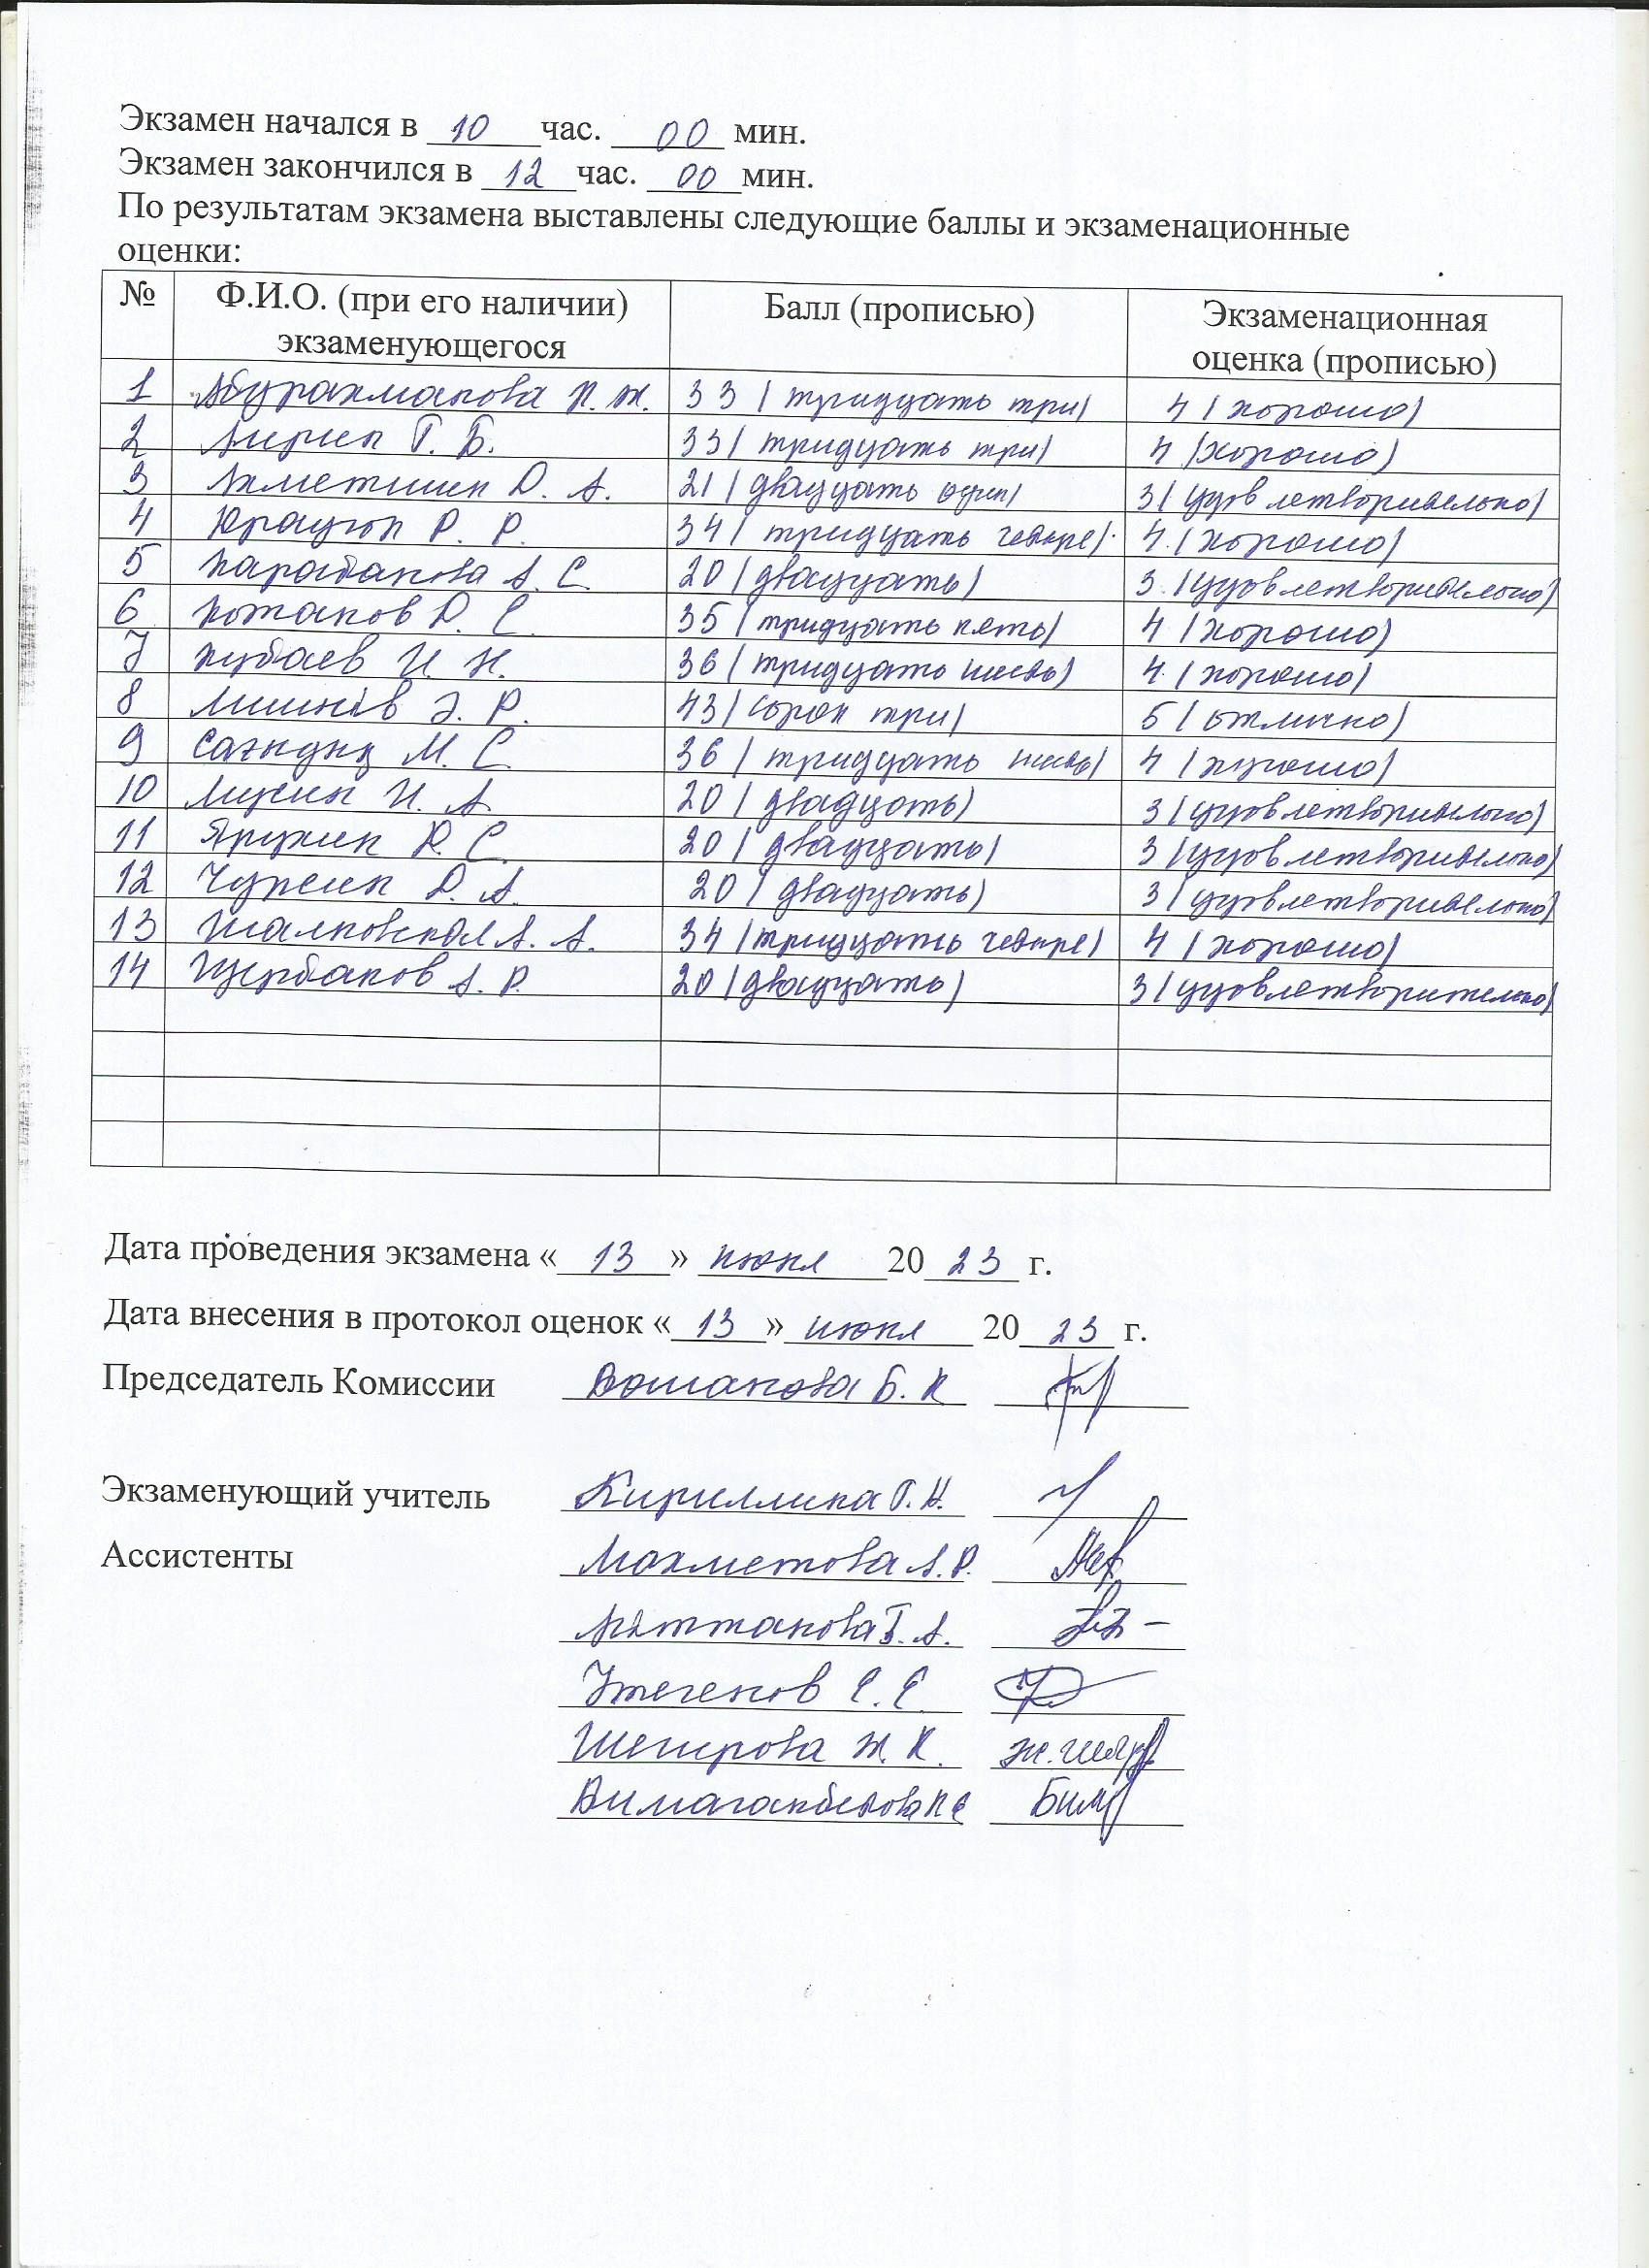 Экзамен начался в 10 час. 00 мин.
Экзамен закончился в 12 час. 00 мин.
По результатам экзамена выставлены следующие баллы и экзаменационные
оценки:
№ Ф.И.О. (при его наличии) экзаменующегося Балл (прописью) Экзаменационная оценка (прописью)
1 Абдрахманова К. Ж. 33 (тридцать три) 4 (хорошо)
2 Г. Б. 33 (тридцать три) 4 (хорошо)
3 Ахметшин Д. А. 21 (двадцать один) 3 (удовлетворительно)
4 Р. Р. 34 (тридцать четыре) 4 (хорошо)
5 Карабанова А. С. 20 (двадцать) 3 (удовлетворительно)
6 Кожанов Д. С. 35 (тридцать пять) 4 (хорошо)
7 Кубаев И. Н. 36 (тридцать шесть) 4 (хорошо)
8 Э. Р. 43 (сорок три) 5 (отлично)
9 М. С. 36 (тридцать шесть) 4 (хорошо)
10 И. А. 20 (двадцать) 3 (удовлетворительно)
11 С. 20 (двадцать) 3 (удовлетворительно)
12 Д. А. 20 (двадцать) 3 (удовлетворительно)
13 Шалковская А. А. 34 (тридцать четыре) 4 (хорошо)
14 Щербаков А. Р. 20 (двадцать) 3 (удовлетворительно)
Дата проведения экзамена «13» июня 2023 г.
Дата внесения в протокол оценок «13» июня 2023 г.
Председатель Комиссии Дошанова Б. К
Экзаменующий учитель Кириллина Г. Н.
Ассистенты Махметова А. Р.
А.
Утегенов Е. Е
Шегирова Ж. К. Ж.